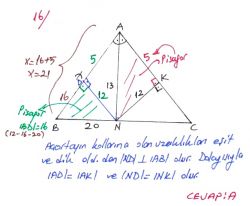 16/
A
X=16+5
X=21
5
5
Pisagor
D
K
13
12
12
16
Pisagor
|BD|=16
(12-16-20)
B
20
N
C
Açıortayın kollarına olan uzaklıkları eşit
ve dik old. dan |ND| ⊥ |AB| olur. Dolayısıyla
|AD|=|AK| ve |ND|=|NK| olur.
CEVAP:A